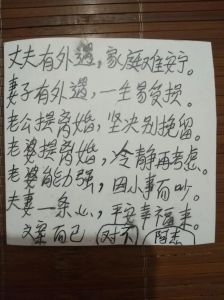 丈夫有外遇，家庭难安宁。
妻子有外遇，一生易受损。
老公提离婚，坚决别挽留。
老婆提离婚，冷静再考虑。
老婆能力强，因小事而吵。
夫妻一条心，平安幸福来。
文案而已（对不）（阿杰）